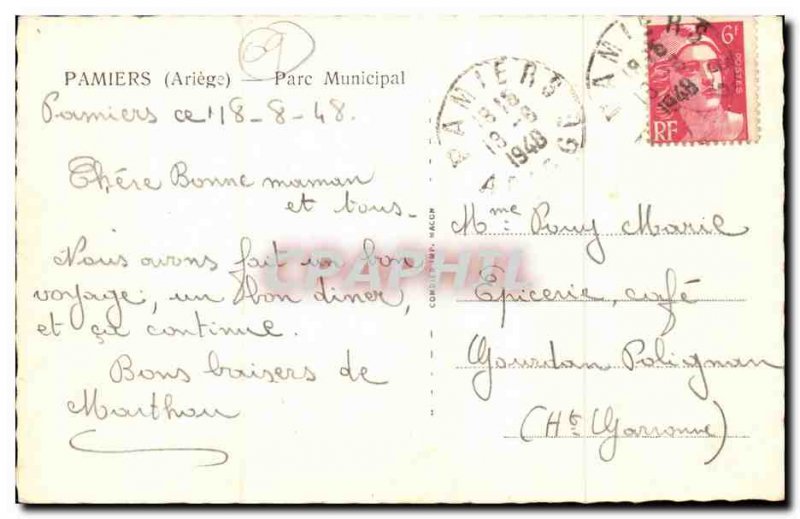 09
PAMIERS (Ariège) — Parc Municipal
Pamiers ce 18-8-48.
Chère Bonne maman
et tous-
Nous avons fait un bon
voyage, un bon diner,
et ça continue.
Bons baisers de
Marthou
CPAPHIL
COMBIER IMP. MACON
PAMIERS
18 18
18-8
1948
PAMIERS
1948
6f
POSTES
RF
Mme Pouy Marie
Epicerie, café
Gourdan Polignan
(Hte Garonne)